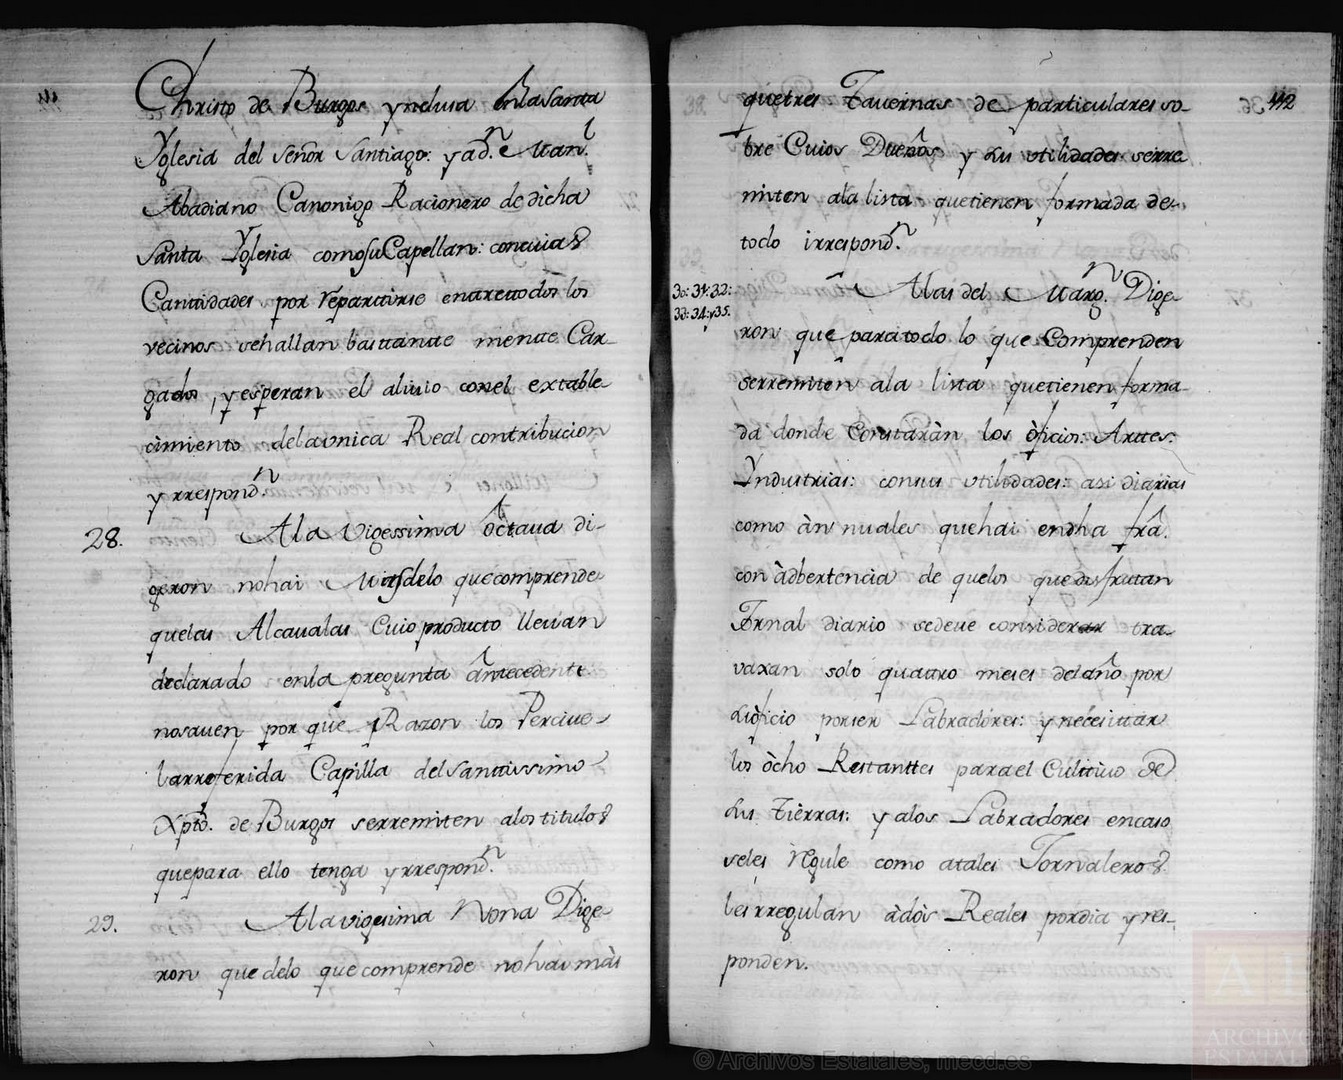 Christo de Burgos ynclusa enlaSanta
Yglesia del señor Santiago: y ad.n Man.l
Abadiano Canonigo Racionero de dicha
Santa Yglesia comosuCapellan: concuias
Cantidades por repartirse entrettodos los
vecinos sehallan basttantte mentte Car-
gados, yesperan el aliuio conel extable-
cimiento delaunica Real contribucion
yrrespond.n
28. Ala vigessima octaua di-
geron nohai Masdelo quecomprende
quelas Alcaualas Cuio producto lleuan
declarado enla pregunta antecedente
nosauen por que Razon los Perciue
larreferida Capilla delsanttissimo
Xpto. de Burgos serremiten alos titulos
quepara ello tenga yrrespond.n
29. Alavigesima Nona Dige-
ron que delo quecomprende nohai màs
112
quetres Tauernas de particulares so-
bre Cuios Dueños y sus utilidades serre
miten ala lista quetienen formada de-
todo irrespond.n
30: 31: 32:
33: 34: y35.
Alas del Marg.n Dige-
ron que paratodo lo que Comprenden
serremiten ala lista quetienen forma-
da donde Constaràn los òficios: Artes:
Yndustrias: consus utilidades: asi diarias
como àn nuales quehai endha frâ.
con àdbertencia de quelos que disfrutan
Jornal diario sedeue considerar tra-
vaxan solo quattro meses delaño por
suòficio porser Labradores: ynécesittar
los òcho Restanttes parael Cultiuo de
sus Tièrras: yalos Labradores encaso
seles regule como atales Jornaleros
lesirregulan àdòs Reales pordia yres-
ponden.
© Archivos Estatales, mecd.es
ARCHIVOS
ESTATALES